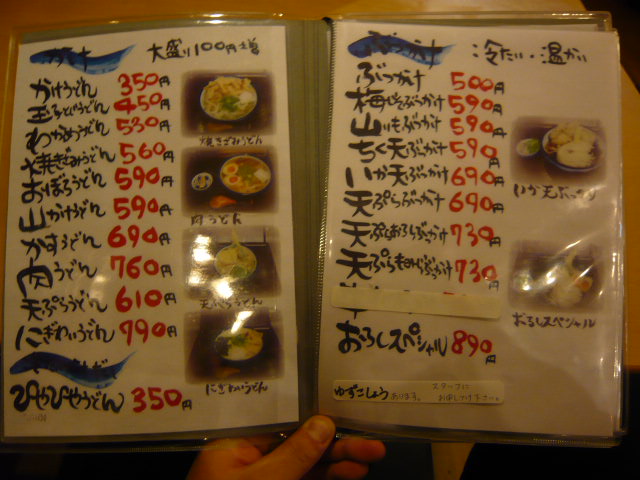 かけ 大盛り100円増
かけうどん 350円
玉子とじうどん 450円
わかめうどん 530円
焼きざみうどん 560円
おぼろうどん 590円
山かけうどん 590円
かすうどん 690円
肉うどん 760円
天ぷらうどん 610円
にぎわいうどん 790円
ひやひやうどん 350円
焼きざみうどん
肉うどん
天ぷらうどん
にぎわいうどん
ぶっかけ 冷たい・温かい
ぶっかけ 500円
梅じそぶっかけ 590円
山いもぶっかけ 590円
ちく天ぶっかけ 590円
いか天ぶっかけ 690円
天ぷらぶっかけ 690円
天ぷらおろしぶっかけ 730円
天ぷら山いもぶっかけ 730円
おろしスペシャル 890円
ゆずこしょうあります。 スタッフにお申し付け下さい。
いか天ぶっかけ
おろしスペシャル